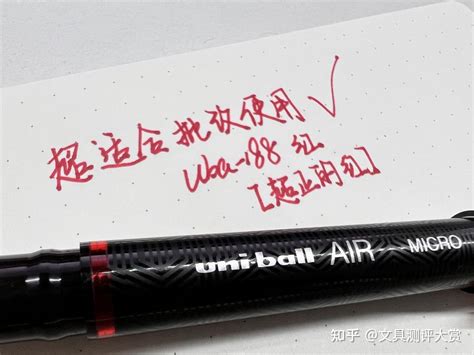 超适合批改使用✓
uba-188 红
[超正的红]
uni-ball AIR MICRO
知乎 @文具测评大赏